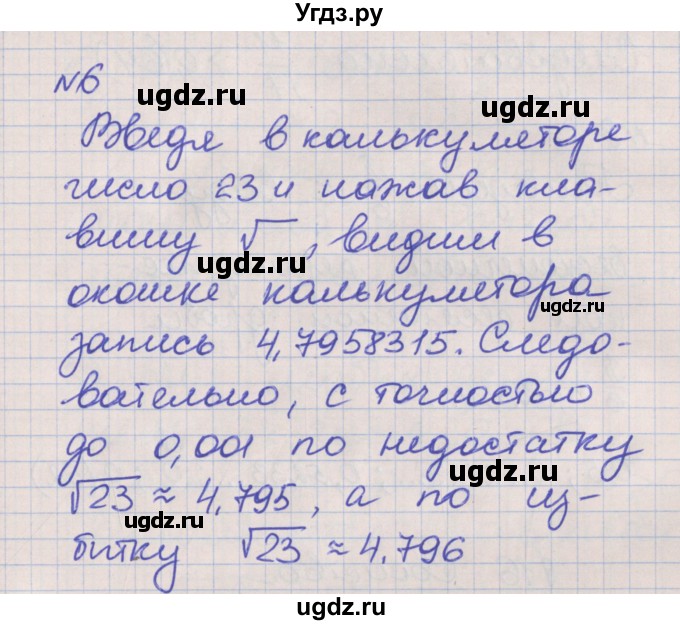 Угдз.ру
№6
Введя в калькуляторе
число 23 и нажав кла-
вишу √‾, видим в
окошке калькулятора
запись 4,7958315. Следо-
вательно, с точностью
до 0,001 по недостатку
√23 ≈ 4,795, а по из-
битку √23 ≈ 4,796
ugdz.ru
ugdz.ru
ugdz.ru
ugdz.ru
ugdz.ru
ugdz.ru
ugdz.ru
ugdz.ru
ugdz.ru